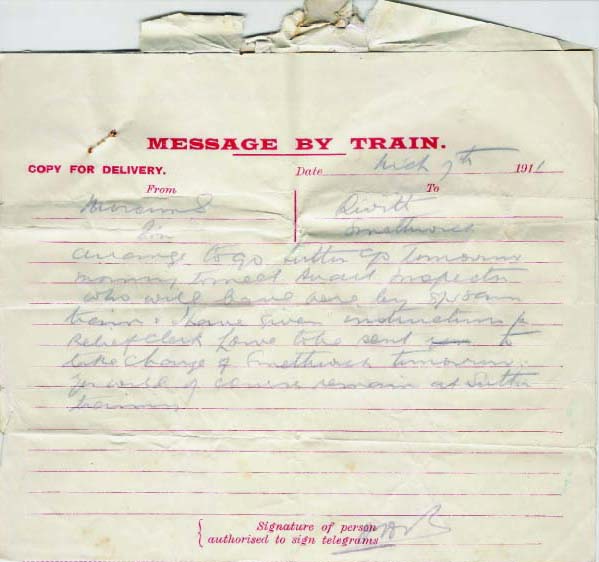 MESSAGE BY TRAIN.
COPY FOR DELIVERY. Date Mch 7th 1911
From To
Smethwick
arrange to go Sutton Co tomorrow
morning to meet Audit Inspector
who will leave here by 8/50am
train. I have given instructions for
relief clerk Lowe to be sent to
take charge of Smethwick tomorrow.
you will of course remain at Sutton
Signature of person
authorised to sign telegrams